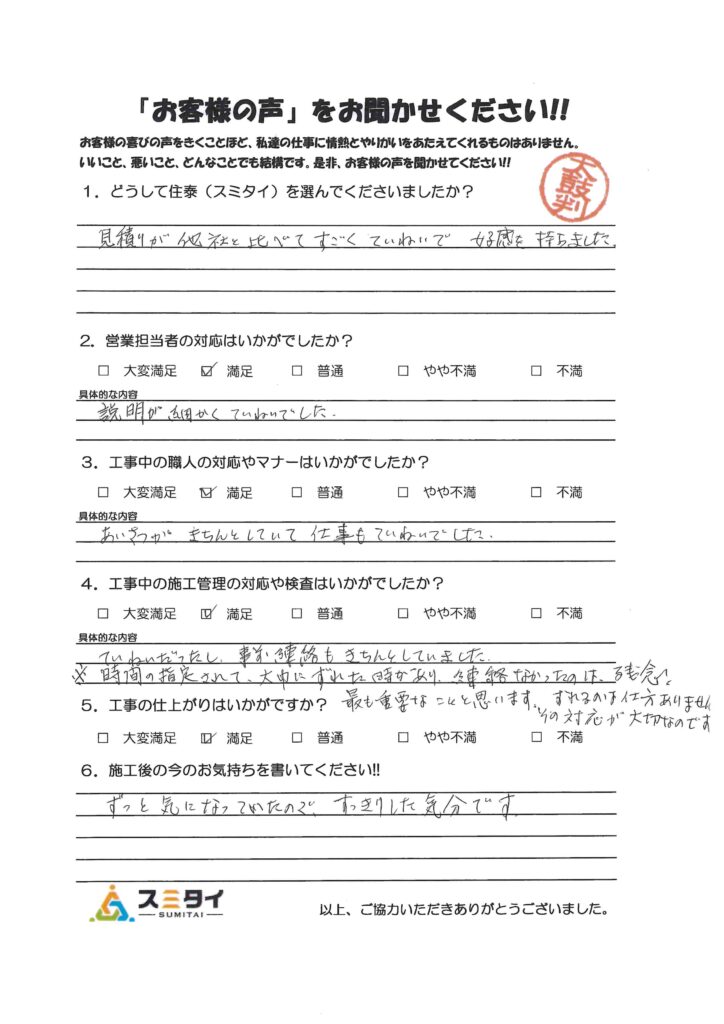 「お客様の声」をお聞かせください!!
お客様の喜びの声をきくことほど、私達の仕事に情熱とやりがいをあたえてくれるものはありません。
いいこと、悪いこと、どんなことでも結構です。是非、お客様の声を聞かせてください!!
太鼓判
1．どうして住泰（スミタイ）を選んでくださいましたか？
見積りが他社と比べてすごくていねいで 好感を持ちました。
2．営業担当者の対応はいかがでしたか？
□ 大変満足 ☑ 満足 □ 普通 □ やや不満 □ 不満
具体的な内容
説明が細かくていねいでした.
3．工事中の職人の対応やマナーはいかがでしたか？
□ 大変満足 ☑ 満足 □ 普通 □ やや不満 □ 不満
具体的な内容
あいさつが きちんとしていて 仕事もていねいでした.
4．工事中の施工管理の対応や検査はいかがでしたか？
□ 大変満足 ☑ 満足 □ 普通 □ やや不満 □ 不満
具体的な内容
ていねいだったし、事前連絡もきちんとしていました.
※ 時間の指定されて、大巾にずれた時があり、連絡なかったのは、残念。
最も重要なことと思います。ずれるのは仕方ありません
その対応が大切なのです
5．工事の仕上がりはいかがですか？
□ 大変満足 ☑ 満足 □ 普通 □ やや不満 □ 不満
6．施工後の今のお気持ちを書いてください!!
ずっと気になっていたので、すっきりした気分です.
スミタイ
SUMITAI
以上、ご協力いただきありがとうございました。